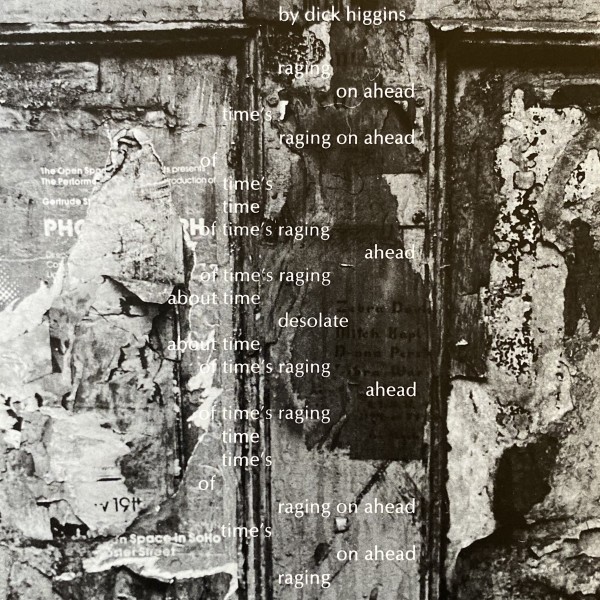 by dick higgins
raging
on ahead
time's
raging on ahead
of
time's
time
of time's raging
ahead
of time's raging
about time
desolate
about time
of time's raging
ahead
of time's raging
time
time's
of
raging on ahead
time's
on ahead
raging
The Open
The Performa
presents
oduction of
Gertrude St
PHO
RH
Space in SoHo
Street